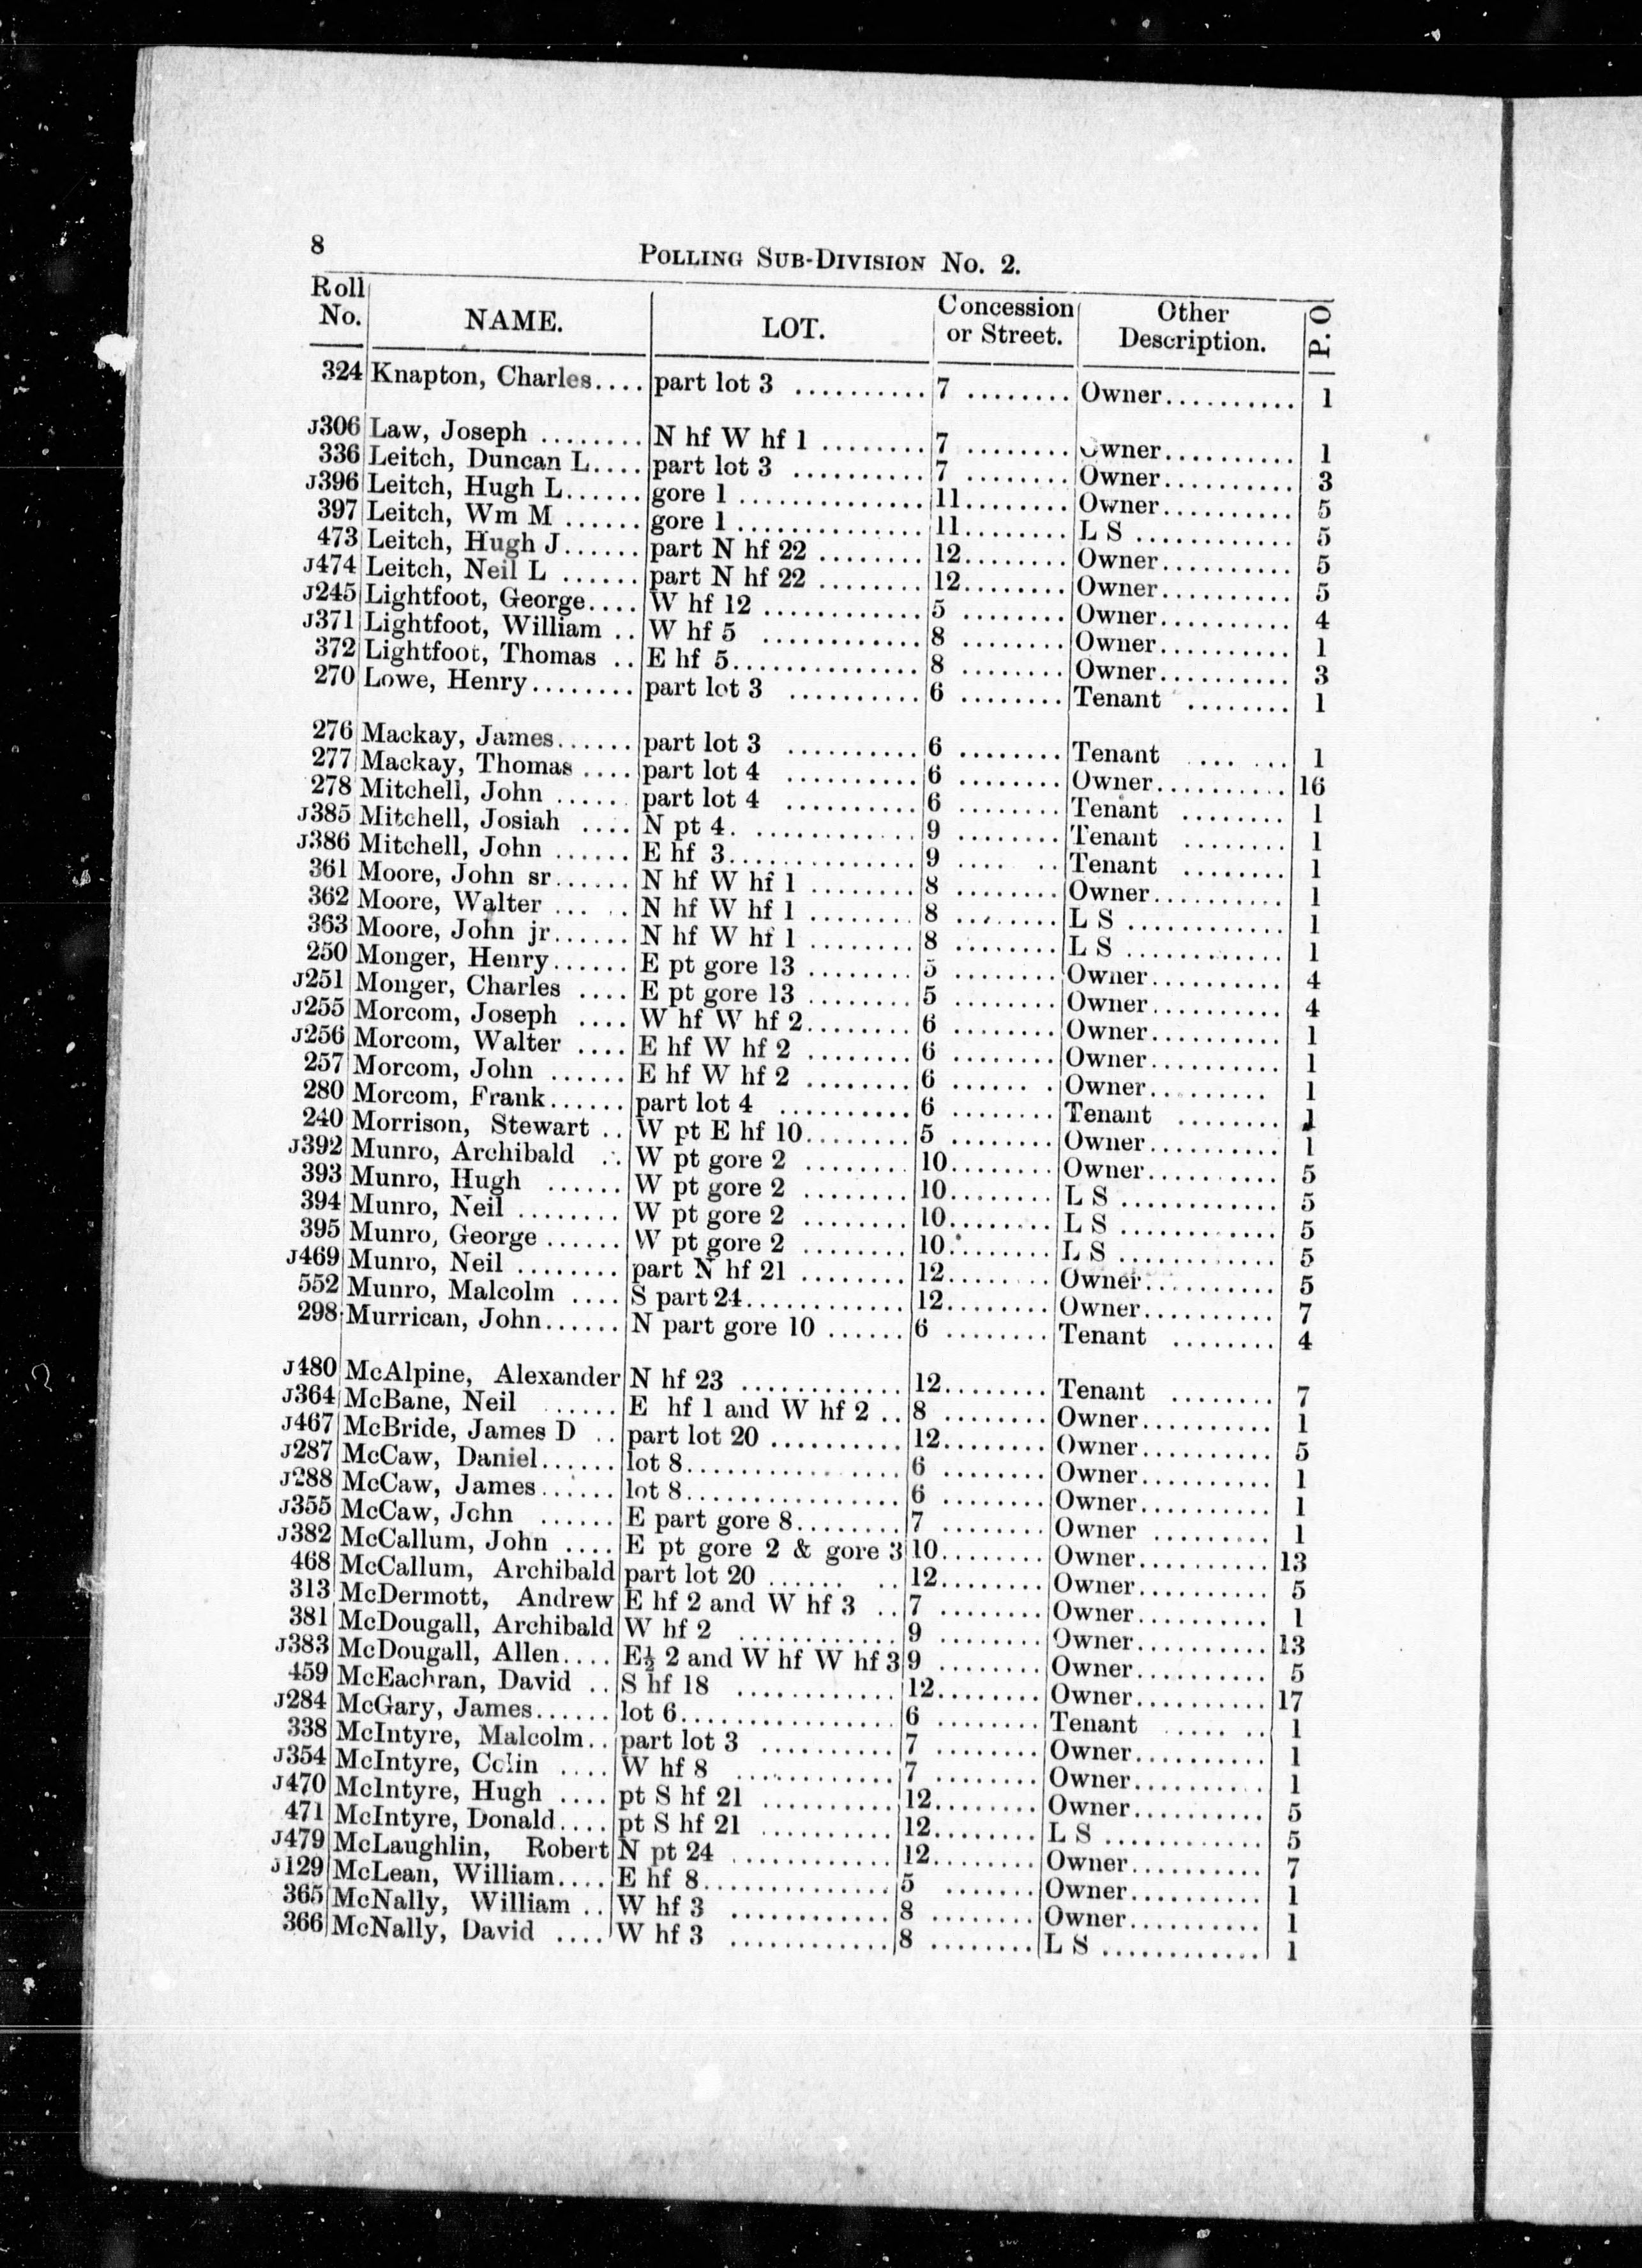 8 POLLING SUB-DIVISION No. 2.
Roll No. NAME. LOT. Concession or Street. Other Description. P. O
324 Knapton, Charles.... part lot 3 .......... 7 ........ Owner.......... 1
J306 Law, Joseph ........ N hf W hf 1 ........ 7 ........ Owner.......... 1
336 Leitch, Duncan L.... part lot 3 .......... 7 ........ Owner.......... 3
J396 Leitch, Hugh L...... gore 1 .............. 11........ Owner.......... 5
397 Leitch, Wm M ...... gore 1 .............. 11........ L S ............ 5
473 Leitch, Hugh J...... part N hf 22 ........ 12........ Owner.......... 5
J474 Leitch, Neil L ...... part N hf 22 ........ 12........ Owner.......... 5
J245 Lightfoot, George.... W hf 12 ............ 5 ........ Owner.......... 4
J371 Lightfoot, William .. W hf 5 ............ 8 ........ Owner.......... 1
372 Lightfoot, Thomas .. E hf 5.............. 8 ........ Owner.......... 3
270 Lowe, Henry........ part lot 3 .......... 6 ........ Tenant ........ 1
276 Mackay, James...... part lot 3 .......... 6 ........ Tenant ... ... 1
277 Mackay, Thomas .... part lot 4 .......... 6 ........ Owner.......... 16
278 Mitchell, John ...... part lot 4 .......... 6 ........ Tenant ........ 1
J385 Mitchell, Josiah .... N pt 4. ............ 9 ........ Tenant ........ 1
J386 Mitchell, John ...... E hf 3.............. 9 .... .. Tenant ........ 1
361 Moore, John sr...... N hf W hf 1 ........ 8 ........ Owner.......... 1
362 Moore, Walter ... .. N hf W hf 1 ........ 8 ........ L S ............ 1
363 Moore, John jr...... N hf W hf 1 ........ 8 ........ L S ............ 1
250 Monger, Henry...... E pt gore 13 ........ 5 ........ Owner.......... 4
J251 Monger, Charles .... E pt gore 13 ........ 5 ........ Owner.......... 4
J255 Morcom, Joseph .... W hf W hf 2........ 6 ........ Owner.......... 1
J256 Morcom, Walter .... E hf W hf 2 ........ 6 ........ Owner.......... 1
257 Morcom, John ...... E hf W hf 2 ........ 6 ...... . Owner.......... 1
280 Morcom, Frank...... part lot 4 .......... 6 ........ Tenant ........ 1
240 Morrison, Stewart .. W pt E hf 10........ 5 ........ Owner.......... 1
J392 Munro, Archibald .. W pt gore 2 ........ 10........ Owner.......... 5
393 Munro, Hugh ...... W pt gore 2 ........ 10........ L S ............ 5
394 Munro, Neil ........ W pt gore 2 ........ 10........ L S ............ 5
395 Munro, George ...... W pt gore 2 ........ 10........ L S ............ 5
J469 Munro, Neil ........ part N hf 21 ........ 12........ Owner.......... 5
552 Munro, Malcolm .... S part 24............ 12........ Owner.......... 7
298 Murrican, John...... N part gore 10 ...... 6 ........ Tenant ........ 4
J480 McAlpine, Alexander N hf 23 ............ 12........ Tenant ........ 7
J364 McBane, Neil ...... E hf 1 and W hf 2 .. 8 ........ Owner.......... 1
J467 McBride, James D .. part lot 20 .......... 12........ Owner.......... 5
J287 McCaw, Daniel...... lot 8................ 6 ........ Owner.......... 1
J288 McCaw, James...... lot 8................ 6 ........ Owner.......... 1
J355 McCaw, John ...... E part gore 8........ 7 ........ Owner ......... 1
J382 McCallum, John .... E pt gore 2 & gore 3 10........ Owner.......... 13
468 McCallum, Archibald part lot 20 ...... .. 12........ Owner.......... 5
313 McDermott, Andrew E hf 2 and W hf 3 .. 7 ........ Owner.......... 1
381 McDougall, Archibald W hf 2 ............ 9 ........ Owner.......... 13
J383 McDougall, Allen.... E½ 2 and W hf W hf 3 9 ........ Owner.......... 5
459 McEachran, David .. S hf 18 ............ 12........ Owner.......... 17
J284 McGary, James...... lot 6................ 6 ........ Tenant ..... .. 1
338 McIntyre, Malcolm.. part lot 3 .......... 7 ........ Owner.......... 1
J354 McIntyre, Colin .... W hf 8 ............ 7 ........ Owner.......... 1
J470 McIntyre, Hugh .... pt S hf 21 .......... 12........ Owner.......... 5
471 McIntyre, Donald.... pt S hf 21 .......... 12........ L S ............ 5
J479 McLaughlin, Robert N pt 24 ............ 12........ Owner.......... 7
J129 McLean, William.... E hf 8.............. 5 ....... Owner.......... 1
365 McNally, William .. W hf 3 ............ 8 ........ Owner.......... 1
366 McNally, David .... W hf 3 ............ 8 ........ L S ............ 1